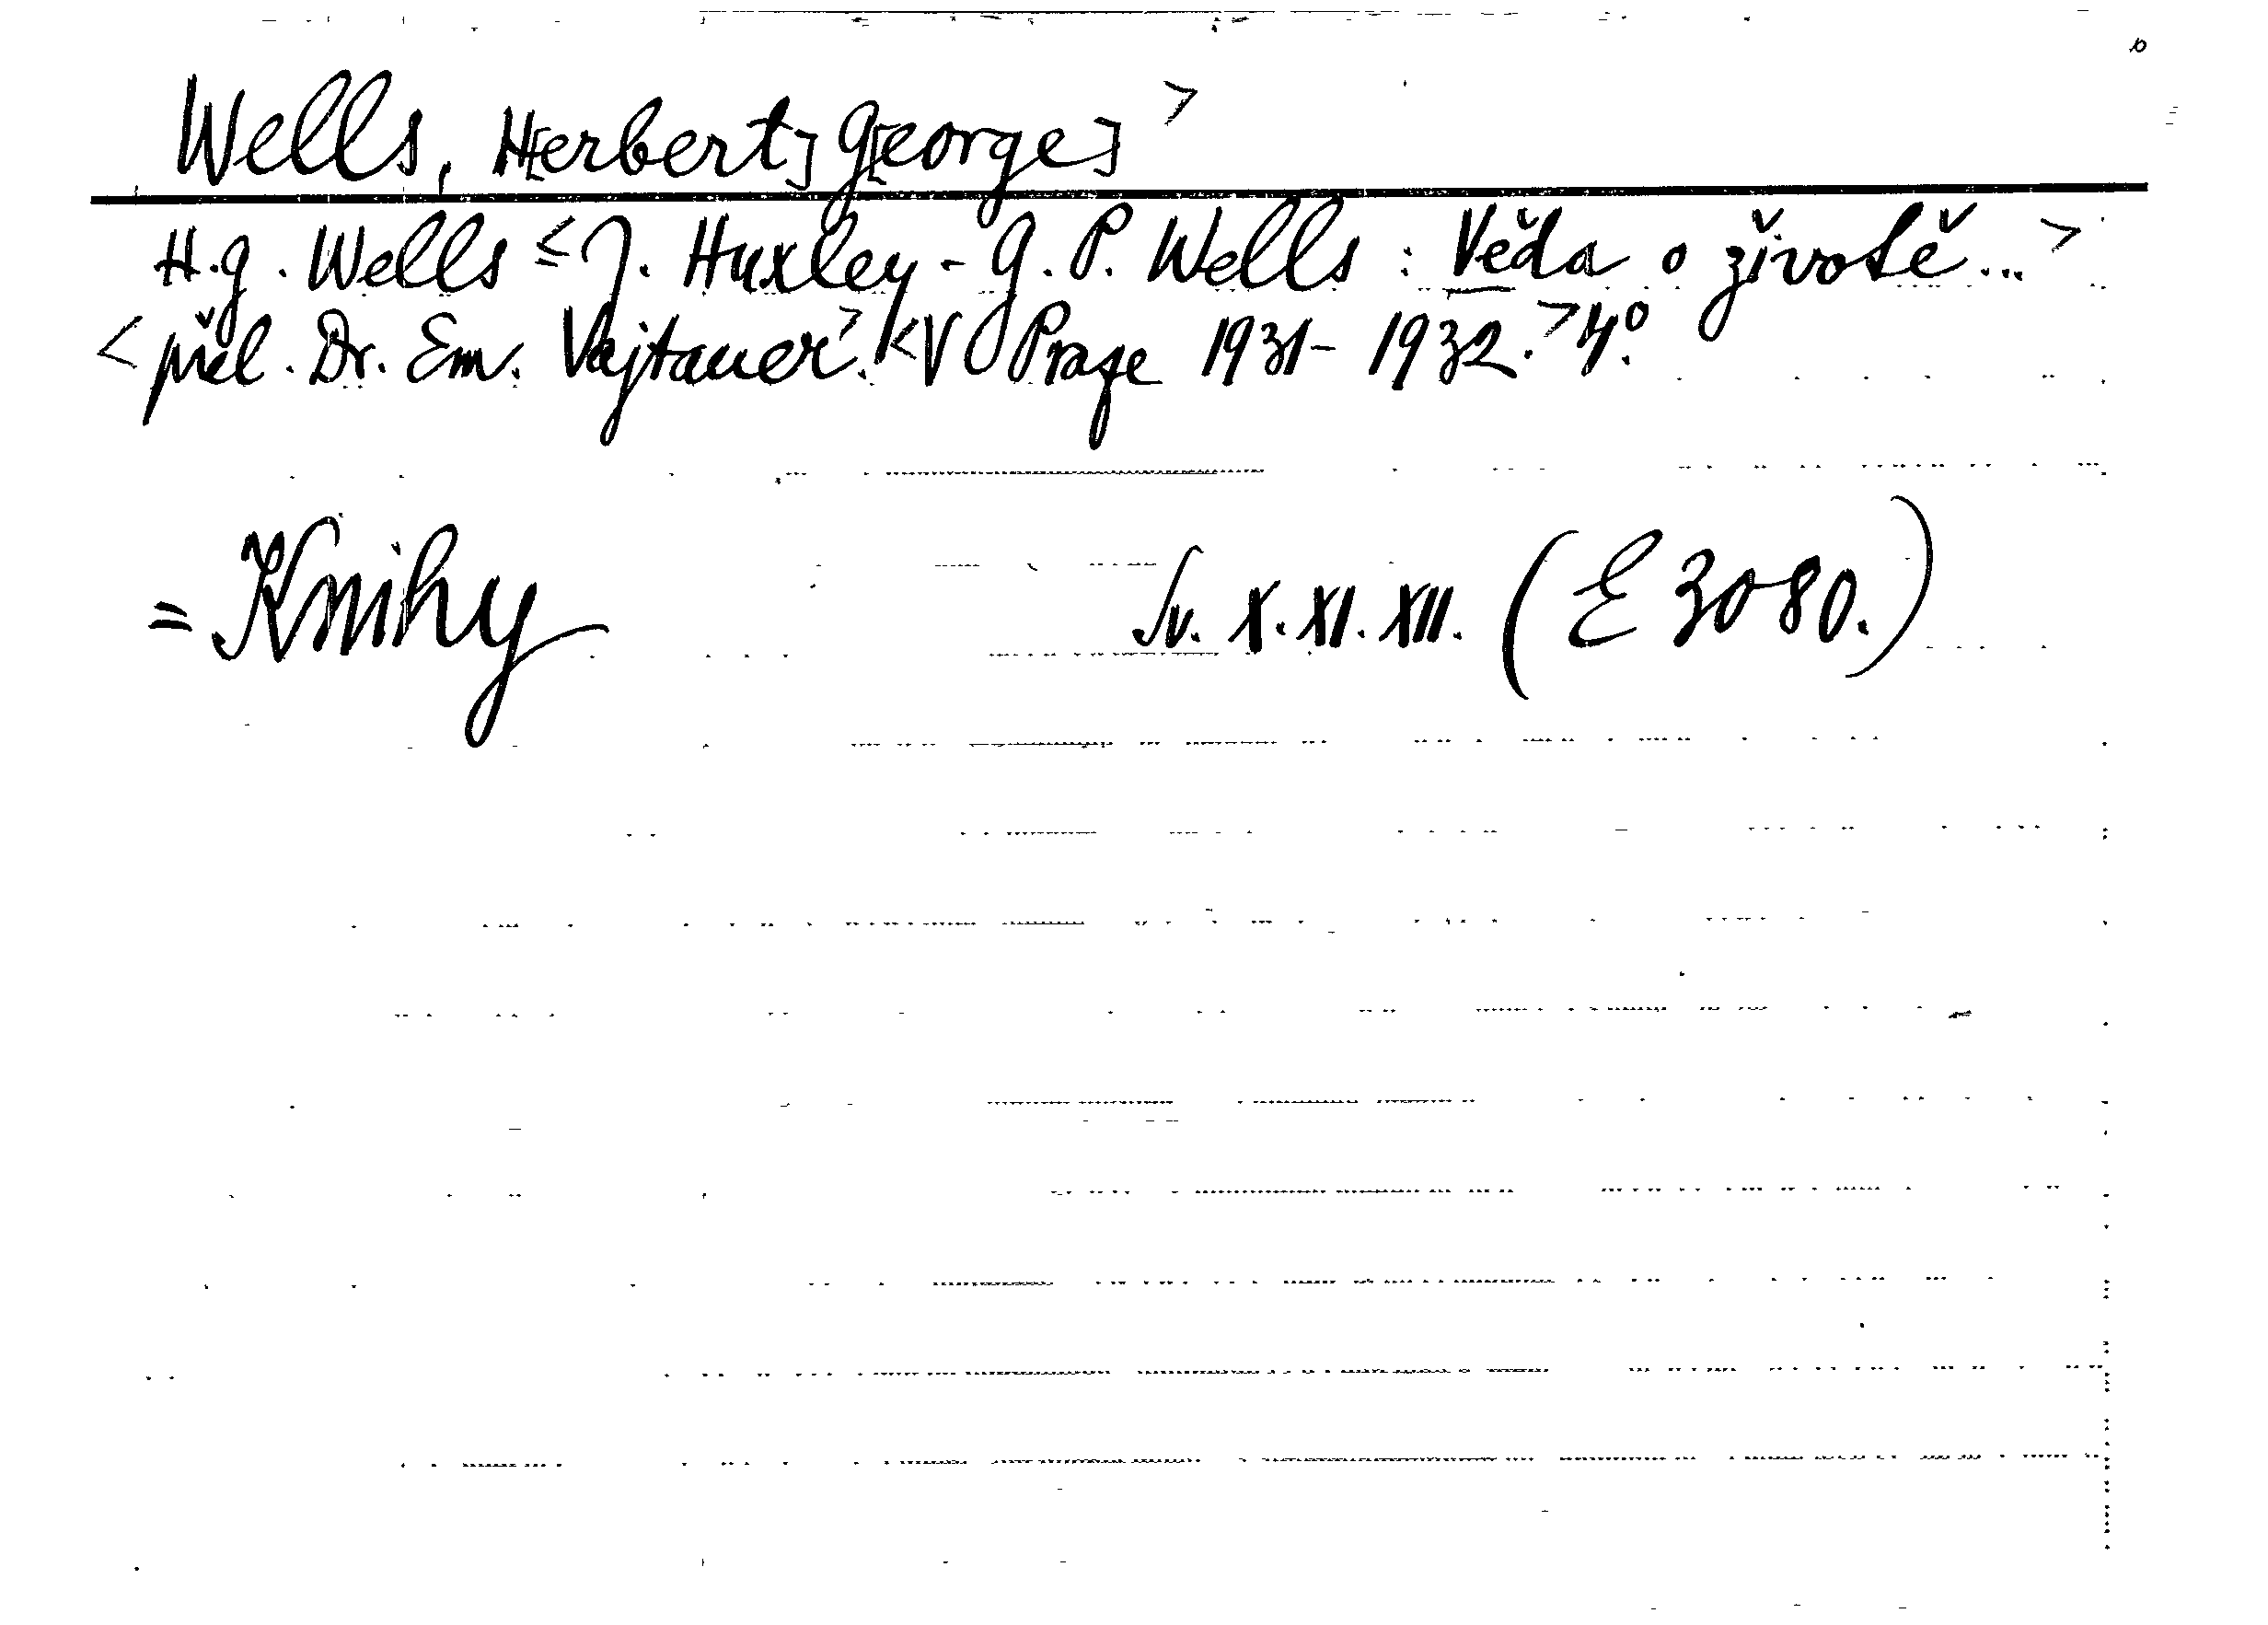 Wells, H[erbert] G[eorge] >
H. G. Wells ≤ J. Huxley - G. P. Wells : Věda o životě... >
< přel. Dr. Em. Vajtauer. > < V Praze 1931 - 1932. > 4º.
= Knihy Sv. X. XI. XII. (E 3080.)